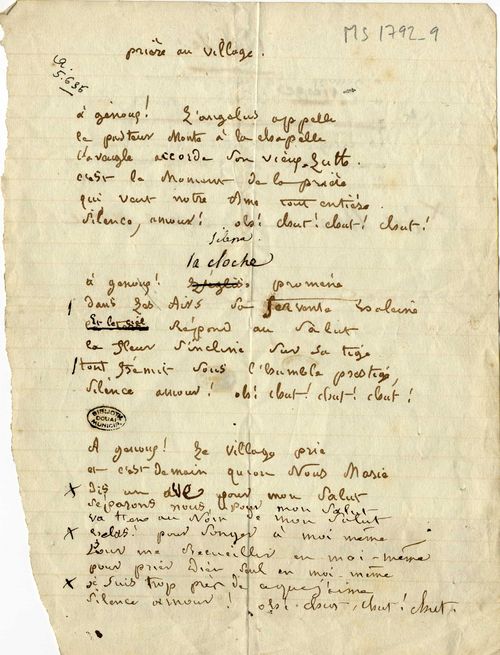 MS 1792_9
prière au village.
a.
5.636
à genoux! L'angelus appelle
le pasteur monte à la chapelle
l'aveugle accorde son vieux luth.
c'est le moment de la prière
qui veut notre âme tout entière.
silence, amour! oh! chut! chut! chut!
silence
la cloche
à genoux! promène
dans les airs sa fervente haleine
Et le ciel Répond au Salut
la fleur s'incline sur sa tige
tout frémit sous l'humble prestige,
silence amour! oh! chut! chut! chut!
BIBLIOTH
DOUAI
MUNICIP.
A genoux! Le village prie
et c'est demain qu'on Nous Marie
x Dis un avé pour mon Salut
séparons nous pour mon Salut
va au Nom de mon Salut
x hélas! pour songer à moi même
Pour me Recueillir en moi-même
pour prier Dieu seul en moi même
x je suis trop près de ce que j'aime
silence amour! oh! chut, chut! chut.